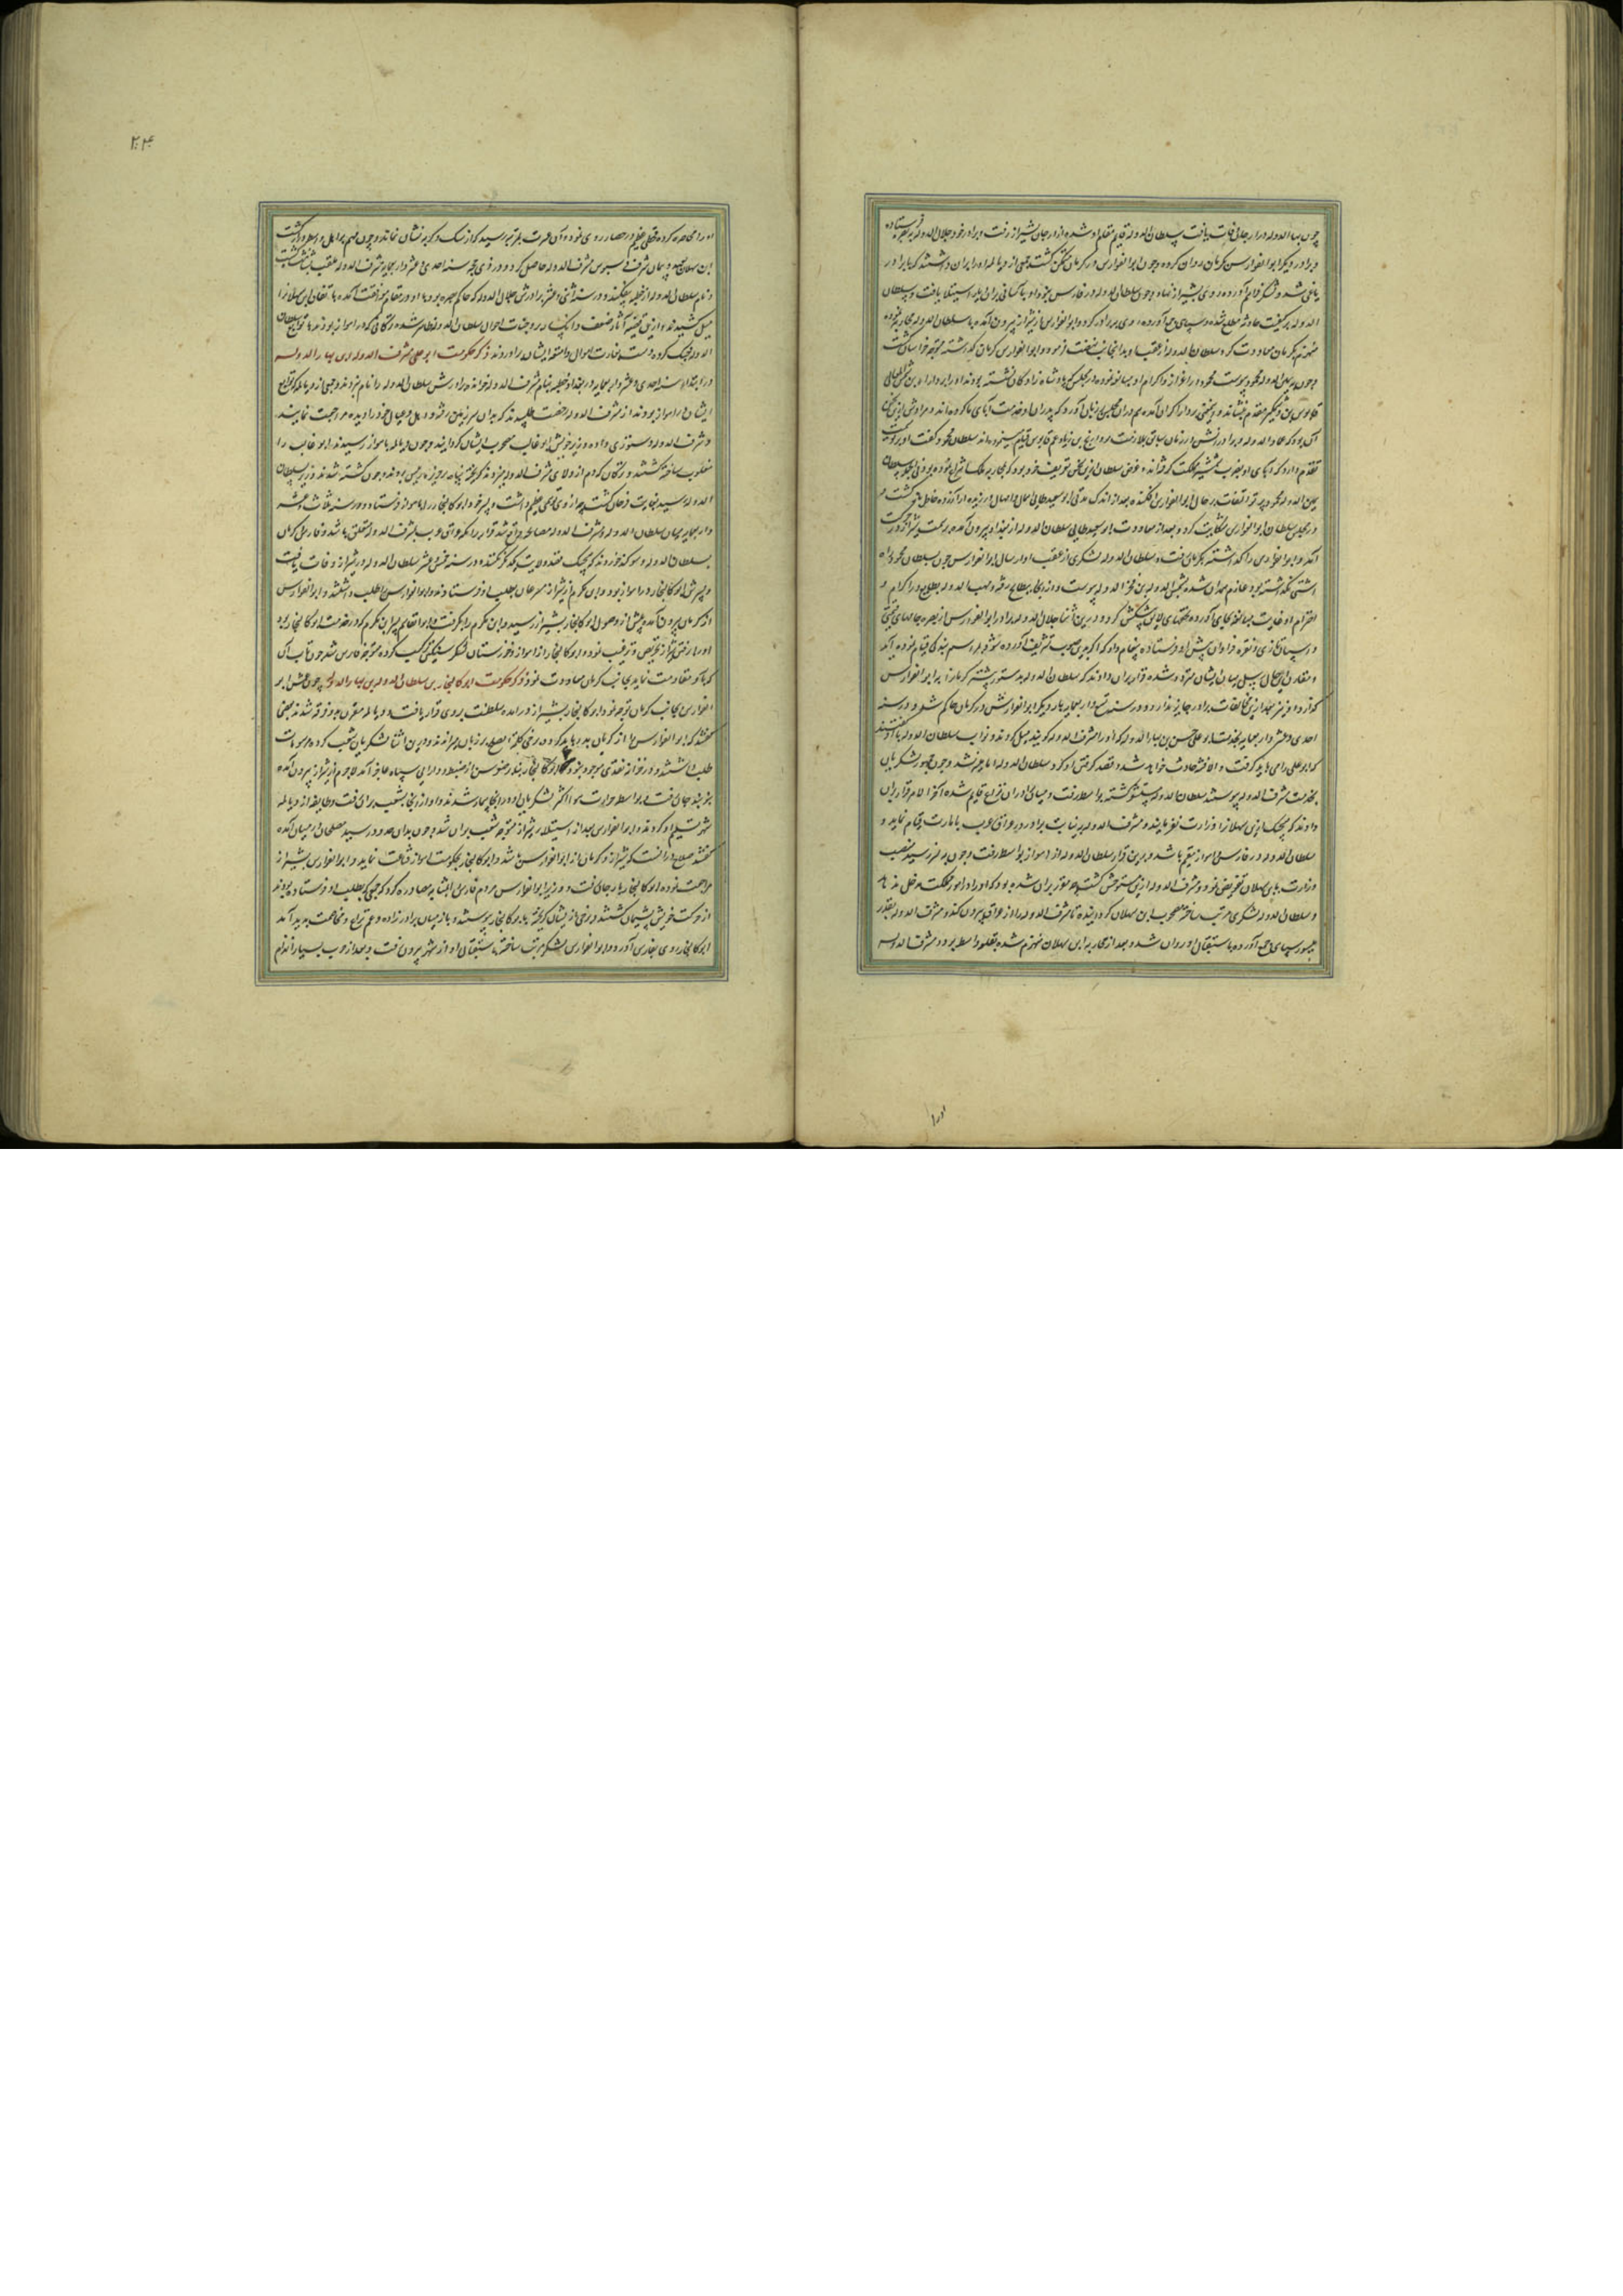 چون بهاء الدوله در ارجان وفات یافت سلطان الدوله قایم مقام او شده از ارجان بشیراز رفت و برادر خود جلال الدوله را ببصره فرستاده
و برادر دیگر ابوالفوارس بکرمان روان کرده و چون ابوالفوارس در کرمان متمکن گشت جمعی از دیالمه او را بران داشتند که با برادر
یاغی شد و لشکر فراهم آورده روی بشیراز نهاد و چون سلطان الدوله در فارس نبود او بآسانی بران بلده استیلا یافت و سلطان
الدوله بر کیفیت حادثه مطلع شده و سپاهی جمع آورده روی ببرادر کرد و ابوالفوارس از شیراز بیرون آمده با سلطان الدوله محاربه نموده
منهزم بکرمان معاودت کرد سلطان الدوله از عقب او بدانجانب نهضت فرمود و ابوالفوارس کرمان گذاشته متوجه خراسان گشت
و چون بیمین الدوله محمود پیوست محمود در اعزاز و اکرام او مبالغه نموده در مجلس که پادشاه زادگان نشسته بودند او را بر دارا بن شمس المعالی
قابوس بن وشمگیر مقدم بنشاند و این معنی بر دارا گران آمده هم دران مجلس بر زبان آورد که پدران او خدمت آبای ما کرده‌اند و مرادش ازین سخن
آن بود که عماد الدوله و برادرانش در زمان سابق بملازمت مرداویج بن زیار عم قابوس قیام مینموده‌اند سلطان محمود گفت او بر تو
تقدم دارد که آبای او بضرب شمشیر مملکت گرفتند و غرض سلطان ازین سخن تعریف خود بود که بمحاربه ملک انتزاع نموده بود
یمین الدوله محمود پرتو التفات بر حال ابوالفوارس افکنده بعد از اندک مدتی ابوسعید طایی را بمال
در مجلس سلطان ابوالفوارس شکایت کرد و بعد از معاودت ابوسعید طایی سلطان الدوله از بغداد بیرون آمده بسمت شیراز حرکت
آمد و ابوالفوارس را گذاشته بکرمان رفت و سلطان الدوله لشکری از عقب او ارسال ابوالفوارس چون سلطان محمود را
آشتی نگذاشته بود عازم همدان شده بشمس الدوله بن فخر الدوله پیوست و از آنجا ببطایح رفته و مهذب الدوله بطایح در اکرام و
احترام او غایت مبالغه بجای آورده تحفهای لایق پیشکش کرد و درین اثنا جلال الدوله برادر ابوالفوارس از بصره جامهای قیمتی
و اسپان تازی و نقره فراوان پیش او فرستاده پیغام داد که اگر بدین صوب تشریف آورده شود بمراسم بندگی قیام نموده آید
و مقارن این حال رسل میان ایشان متردد شده قرار بران دادند که سلطان الدوله بدستور پیشتر کرمان را برادر ابوالفوارس
گذارد و او نیز بعد ازین مخالفت برادر جایز ندارد و در سنه تسع و اربعمایه بار دیگر ابوالفوارس در کرمان حاکم شد و در سنه
احدی و عشر و اربعمایه بخدمت ابوعلی حسن بن بهاء الدوله که او را مشرف الدوله گویند میل کردند و نواب سلطان الدوله با او گفتند
که ابوعلی را می باید گرفت و الا فتنه حادث خواهد شد و قصد گرفتن او کرد و سلطان الدوله را میسر نشد و چون جمهور لشکریان
بخدمت مشرف الدوله پیوستند سلطان الدوله مشوش گشته بواسط رفت و میان برادران نزاع قایم شده آخر الامر قرار بران
دادند که هیچیک ابن سهلان را وزارت نفرمایند و مشرف الدوله به نیابت برادر در عراق عرب بامارت قیام نماید و
سلطان الدوله در فارس و اهواز مقیم باشد و برین قرار سلطان الدوله از اهواز بواسط رفت و چون بتستر رسید منصب
وزارت بابن سهلان تفویض نمود و مشرف الدوله ازین متوحش گشت چه مقرر بران شده بود که او را در امور مملکت مدخل ندهند
و سلطان الدوله لشکری مرتب ساخته مصحوب ابن سهلان گردانیده تا مشرف الدوله را از عراق بیرون کند و مشرف الدوله بقدر
میسور سپاهی جمع آورده باستقبال او روان شد و بعد از محاربه ابن سهلان منهزم شده بقلعه واسط در رفت و مشرف الدوله
۲۰۴
او را محاصره کرده قحطی عظیم در حصار روی نموده و آن عسرت بمرتبه رسید که از سگ و گربه نشان نماند
ابن سهلان عهد و پیمان مشرف الدوله حاصل کرد و در ذی حجه سنه احدی و عشر و اربعمایه مشرف الدوله ملقب بشاهنشاه گشت
و نام سلطان الدوله از خطبه بیفکندند و در سنه اثنی و عشر برادرش جلال الدوله که حاکم بصره بود با او در مقام موافقت آمده باتفاق ابن سهلان را
میل کشیدند و ازین قضیه آثار ضعف و انکسار بر وجنات احوال سلطان الدوله ظاهر شده و ترکانی که در اهواز بودند با توابع سلطان
الدوله جنگ کردند و دست بغارت اموال و امتعه ایشان برآوردند ذکر حکومت ابوعلی مشرف الدوله بن بهاء الدوله
در ابتداء سنه احدی و عشر و اربعمایه در بغداد خطبه بنام مشرف الدوله خواندند و برادرش سلطان الدوله را نام نبردند و جمعی از دیالمه که توابع
ایشان در اهواز بودند از مشرف الدوله رخصت طلبیدند که بدان سرزمین رفته و اهل و عیال خود را دیده مراجعت نمایند
و مشرف الدوله دستوری داده وزیر خویش ابوغالب مصحوب ایشان گردانید و چون دیالمه باهواز رسیدند ابوغالب را
مغلوب ساخته کشتند و ترکان که دم از ولای مشرف الدوله میزدند گریخته پناه
الدوله رسید بغایت فرحان گشت چه از وی وهمی عظیم داشت و پسر خود ابوکالیجار را باهواز فرستاد و در سنه ثلاث عشر
و اربعمایه میان سلطان الدوله و مشرف الدوله مصالحه واقع شد قرار برانکه عراق عرب بمشرف الدوله متعلق باشد و فارس و کرمان
بسلطان الدوله و سوگند خوردند که هیچیک قصد ولایت یکدیگر نکنند و در سنه خمس عشر سلطان الدوله در شیراز وفات یافت
و پسرش ابوکالیجار در اهواز بود و ابن مکرم از شیراز مسرعان بطلب او فرستاد و ابوالفوارس را طلب داشتند و ابوالفوارس
از کرمان بیرون آمد و پیش از وصول ابوکالیجار بشیراز رسید و ابن مکرم را بگرفت و ابوالقاسم پسر ابن مکرم که در خدمت ابوکالیجار بود
او را برفتن شیراز تحریض و ترغیب نمود و ابوکالیجار از اهواز و خوزستان لشکر سنگین ترکیب کرده متوجه فارس شد چون تاب آن
که با او مقاومت نماید بجانب کرمان معاودت نمود ذکر حکومت ابوکالیجار بن سلطان الدوله بن بهاء الدوله چون عمش ابو
الفوارس بجانب کرمان توجه نمود ابوکالیجار بشیراز در آمده سلطنت بر وی قرار یافت و دیالمه متفرق دو فرقه شدند بعضی
گفتند که ابوالفوارس را از کرمان بدر باید کرد و برخی کلمه الصلح بر زبان میراندند و درین اثنا لشکریان شغب کرده مرسومات
طلب داشتند و در خزانه نقدی موجود نبود ابوکالیجار بنابر صغر سن از ضبط و دارایی سپاه عاجز آمد لاجرم از شیراز بیرون آمده
بنوبندجان رفت و بواسطه حرارت هوا اکثر لشکریان او در آنجا بیمار شدند و او از آنجا بشعب بوان رفت و طایفه از دیالمه
شهر تسلیم او کردند و ابوالفوارس بعد از استیلا بر شیراز متوجه شعب بوان شد و چون بدان حدود رسید مصلحان در میان آمده
گفتند صلح درانست که شیراز و کرمان از ابوالفوارس باشد و ابوکالیجار بحکومت اهواز قناعت نماید و ابوالفوارس بشیراز
مراجعت نموده ابوکالیجار بارجان رفت و وزیر ابوالفوارس مردم فارس را مصادره کرد که جمعی که بطلب او فرستاده بودند
از حرکت خویش پشیمان گشتند و برخی از ایشان گریخته بابوکالیجار پیوستند و باز میان برادر زاده و عم نزاع و مخاصمت پدید آمد
ابوکالیجار روی بفارس آورد و ابوالفوارس لشکر مرتب ساخته باستقبال او از شهر بیرون رفت و بعد از حرب بسیار انهزام